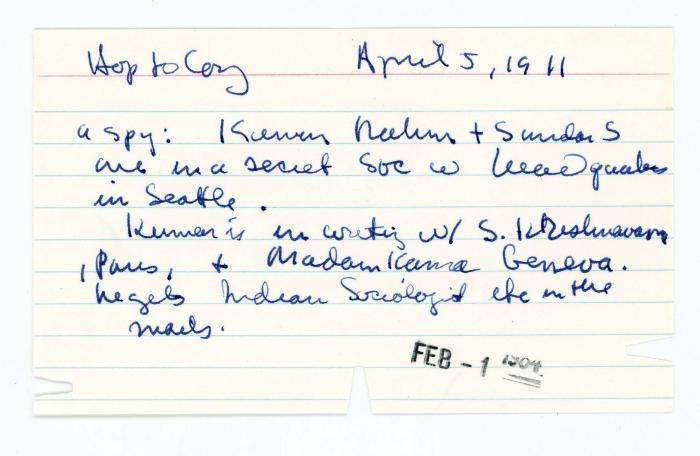 Hop to Cory April 5, 1911
a spy: Kumar Rahim + Sundar S
are in a secret Soc w Headquarters
in Seattle.
Kumar is in writing w/ S. Krishnavarma
, Paris, + Madam Kama Geneva.
he gets Indian Sociologist etc in the
mails.
FEB - 1